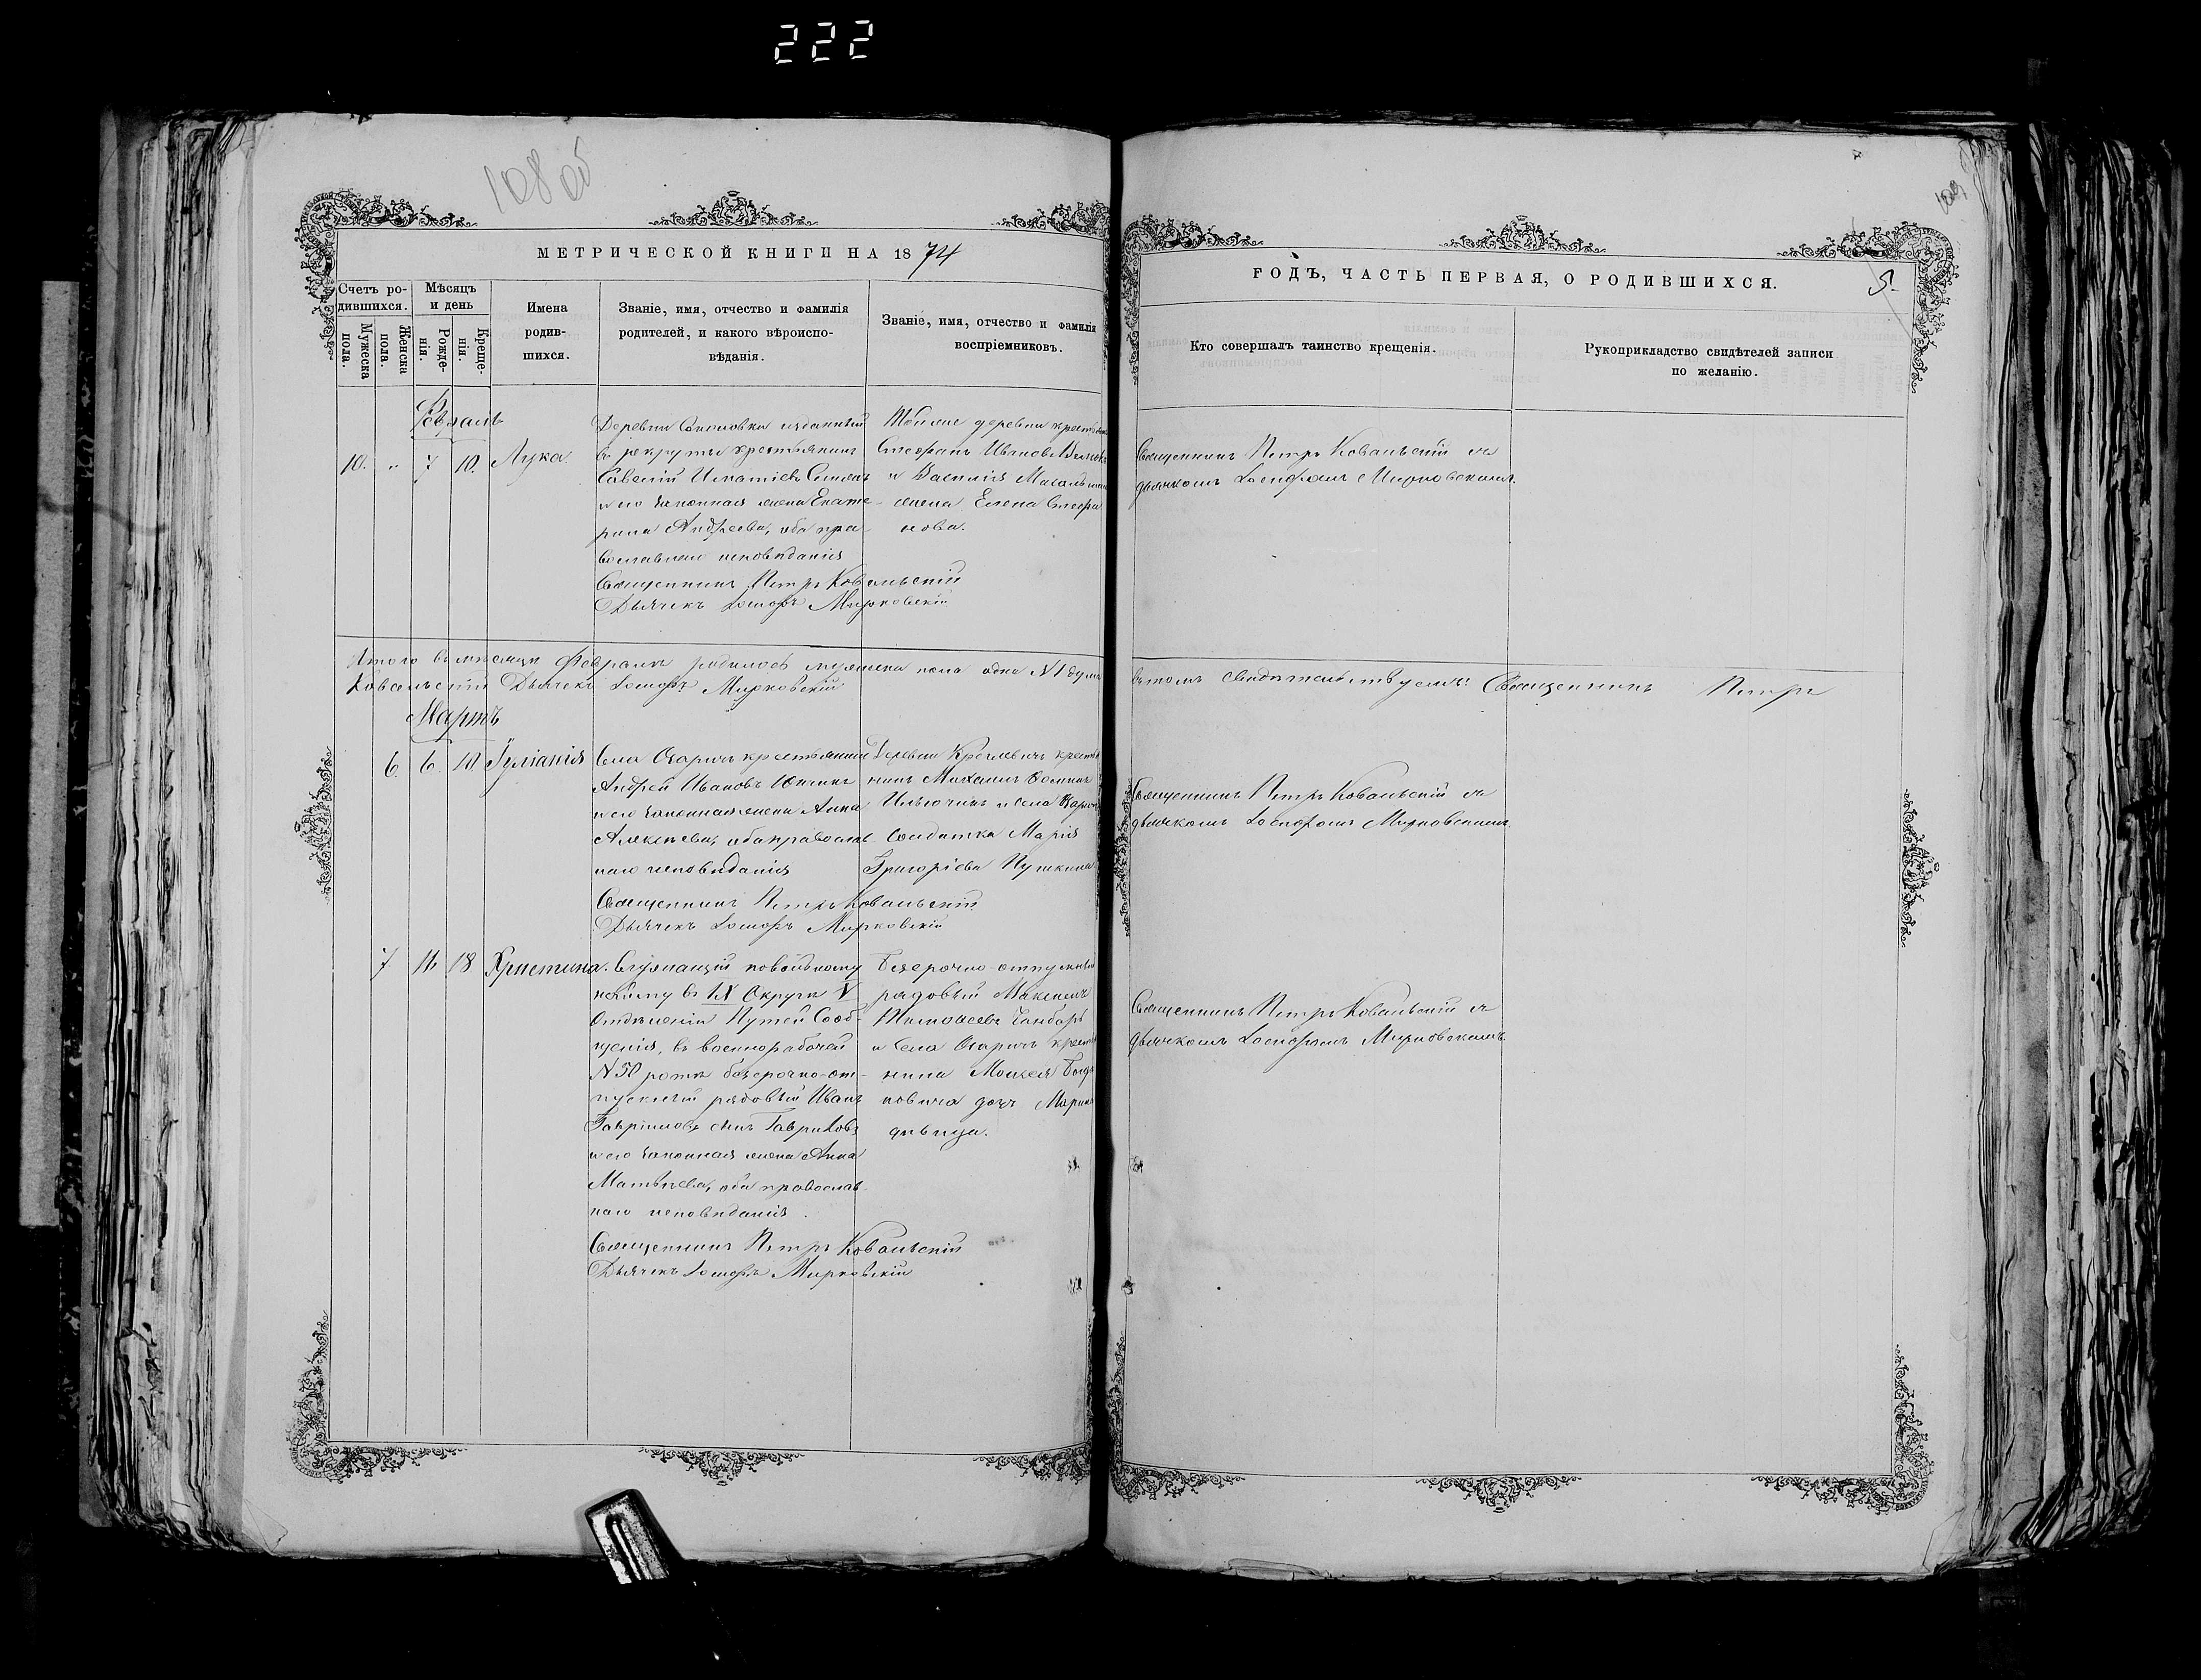 222
108 об
109
МЕТРИЧЕСКОЙ КНИГИ НА 1874
ГОДЪ, ЧАСТЬ ПЕРВАЯ, О РОДИВШИХСЯ.
5.
Счетъ ро-
дившихся.
Мужеска
пола.
Женска
пола.
Мѣсяцъ
и день
Рожде-
нія.
Креще-
нія.
Имена
родив-
шихся.
Званіе, имя, отчество и фамилія
родителей, и какого вѣроиспо-
вѣданія.
Званіе, имя, отчество и фамилія
воспріемниковъ.
Кто совершалъ таинство крещенія.
Рукоприкладство свидѣтелей записи
по желанію.
Февраль
10. " 7 10. Лука.
Деревни взданный
въ рекруты крестьянинъ
Савелій Игнатіевъ
и его законная жена Екате-
рина Андреева, оба пра-
вославнаго исповѣданія
Священникъ Петръ Ковальскій
Дьячекъ Іосифъ Мирковскій
Тойже деревни
Стефанъ Ивановъ
и Василія
жена Елена Стефа
нова.
Священникъ Петръ Ковальскій съ
дьячкомъ Іосифомъ Мирковскимъ.
Итого въ мѣсяцѣ Февралѣ родилось мужеска пола одна №1 душа
въ томъ свидѣтельствуемъ: Священникъ Петръ
Ковальскій Дьячекъ Іосифъ Мирковскій
Мартъ
6. 6. 10. Іуліанія
Села Огаричъ крестьянинъ
Андрей Ивановъ
и его законная жена Анна
Алексѣева, оба православ-
наго исповѣданія
Священникъ Петръ Ковальскій
Дьячекъ Іосифъ Мирковскій
Деревни
нинъ Михаилъ Ѳоминъ
и села
солдатка Марія
Григоріева
Священникъ Петръ Ковальскій съ
дьячкомъ Іосифомъ Мирковскимъ.
7 18 Христина.
Служащій по вольному
найму въ IX Округѣ V
Отдѣленіи Путей Сооб-
щенія, въ военнорабочей
№50 ротѣ безсрочно-от-
пускной рядовый Иванъ
Гавріиловъ сынъ Гавриковъ
и его законная жена Анна
Матвѣева, оба православ-
наго исповѣданія.
Священникъ Петръ Ковальскій
Дьячекъ Іосифъ Мирковскій
Безсрочно-отпускный
рядовый Максимъ
Тимоѳеевъ
и села Огаричъ
нина Моисея
дочь Марина
дѣвица.
Священникъ Петръ Ковальскій съ
дьячкомъ Іосифомъ Мирковскимъ.